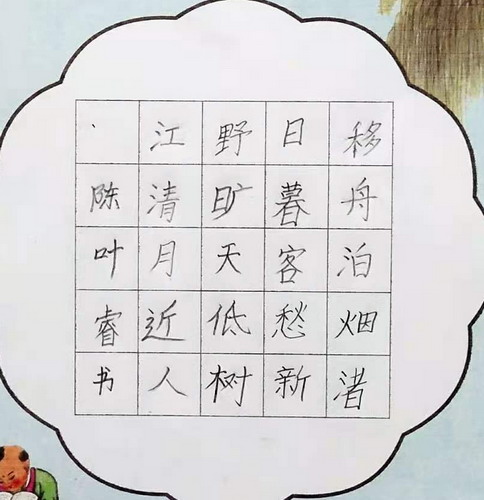 移舟泊烟渚
日暮客愁新
野旷天低树
江清月近人
陈叶睿书